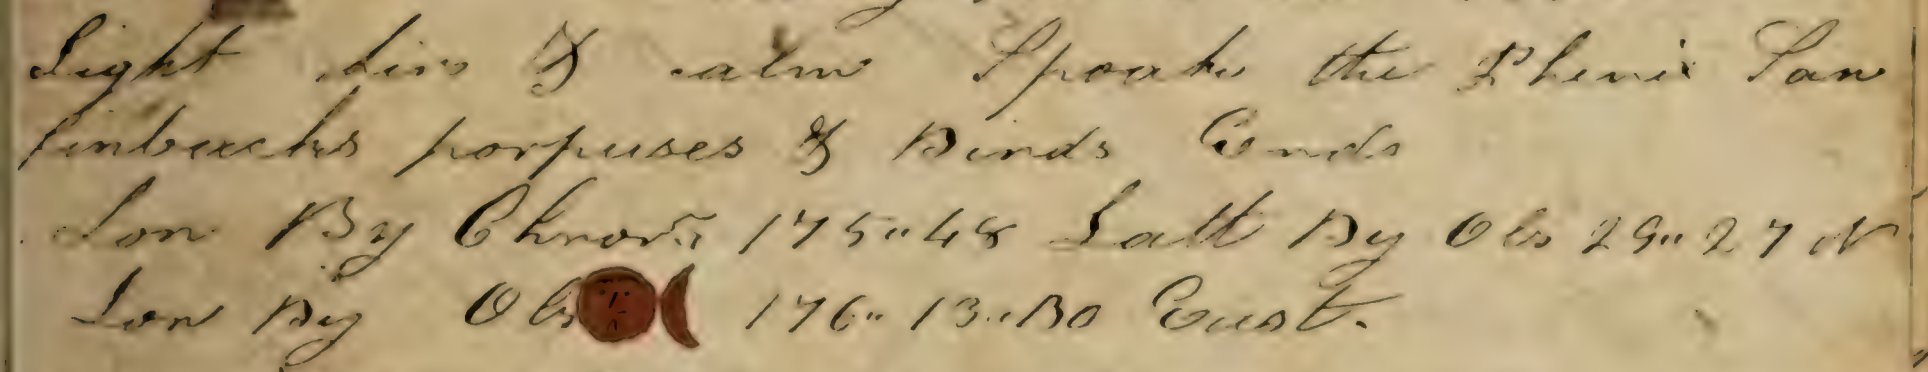 Light Airs & calm Spoake the Phenix Saw
finbacks porpuses & Birds Ends
Lon By Chron 175"48 Latt By Obs 29"27 N
Lon By Obs 176"13"30 East.